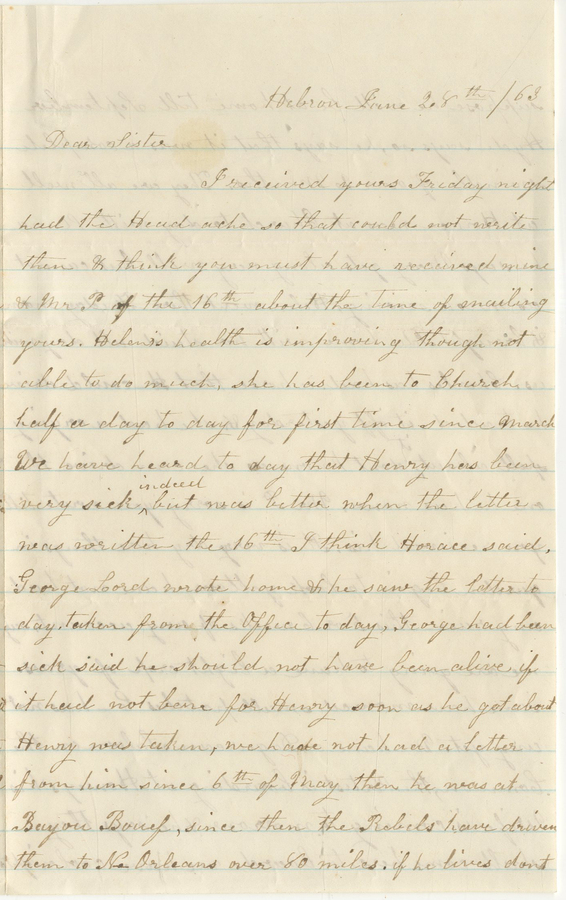 Hebron June 28th /63
Dear Sister
I received yours Friday night
had the Head ache so that could not write
then & think you must have received mine
& Mr P of the 16th about the time of mailing
yours. Helens health is improving though not
able to do much, she has been to Church
half a day to day for first time since March
We have heard to day that Henry has been
very sick, indeed but was better when the letter
was written the 16th I think Horace said.
George Lord wrote home & he saw the letter to
day. taken from the Office to day, George had been
sick said he should not have been alive if
it had not been for Henry soon as he got about
Henry was taken, we have not had a letter
from him since 6th of May then he was at
Bayou Bouef, since then the Rebels have driven
them to N Orleans over 80 miles. if he lives dont